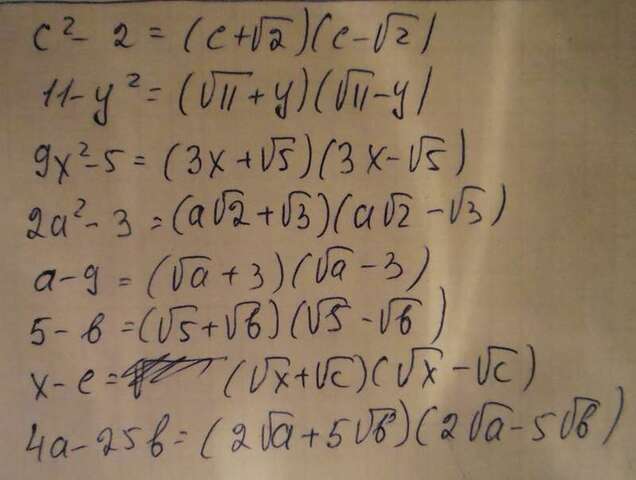 c² - 2 = (c+√2)(c-√2)
11 - y² = (√11 + y)(√11 - y)
9x² - 5 = (3x + √5)(3x - √5)
2a² - 3 = (a√2 + √3)(a√2 - √3)
a - 9 = (√a + 3)(√a - 3)
5 - b = (√5 + √b)(√5 - √b)
x - c = (√x + √c)(√x - √c)
4a - 25b = (2√a + 5√b)(2√a - 5√b)